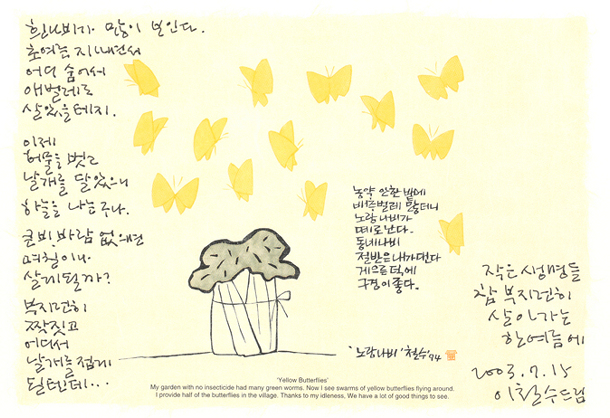 흰나비가 많이 보인다.
초여름 지내면서
어디 숨어서
애벌레로
살았을테지.
이제
허물을 벗고
날개를 달았으니
하늘을 나는구나.
큰비, 바람 없으면
며칠이나
살게될까?
부지런히
짝짓고
어디서
날개를 접게
될텐데...
농약 안한 밭에
배추벌레 많더니
노랑나비가
떼로 난다.
동네나비
절반은 내가 댄다
게으른 덕에
구경이 좋다.
'노랑나비' 철수 94
'Yellow Butterflies'
My garden with no insecticide had many green worms. Now I see swarms of yellow butterflies flying around.
I provide half of the butterflies in the village. Thanks to my idleness, We have a lot of good things to see.
작은 생명들
참 부지런히
살아가는
한여름에
2003.7.15
이철수 드림